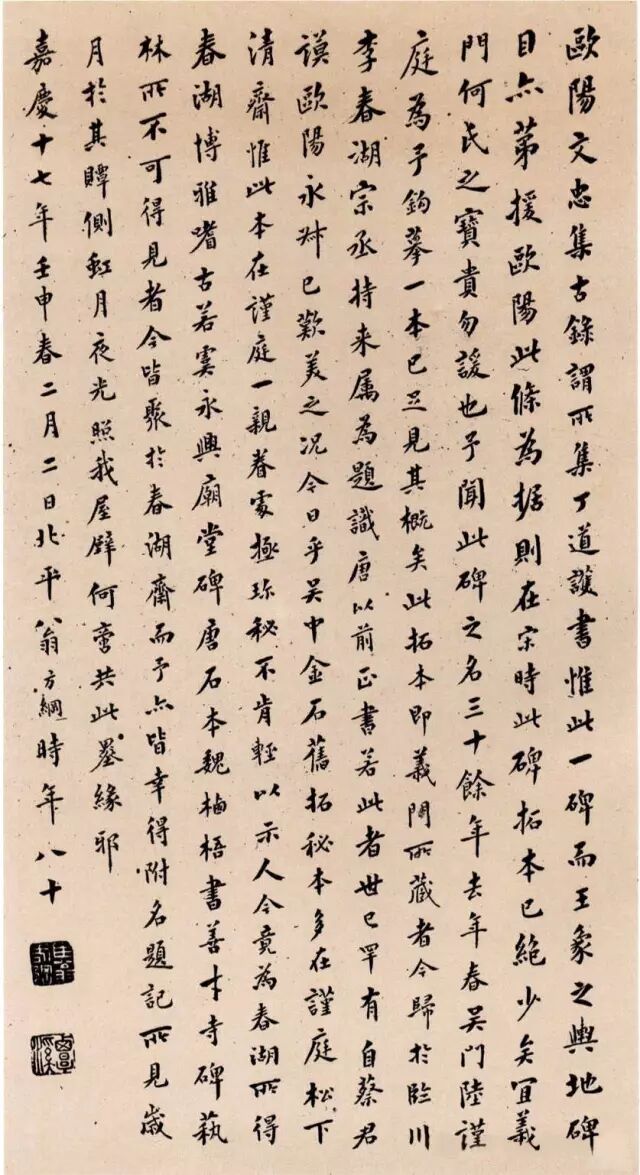 歐陽文忠集古錄謂所集丁道護書惟此一碑而王象之輿地碑
目亦第援歐陽此條為据則在宋時此碑拓本已絕少矣宜義
門何氏之寶貴勿諼也予聞此碑之名三十餘年去年春吳門陸謹
庭為予鈎摹一本已足見其概矣此拓本即義門所藏者今歸於臨川
李春湖宗丞持来属為題識唐以前正書若此者世已罕有自蔡君
謨歐陽永叔已歎美之况今日乎吳中金石舊拓秘本多在謹庭松下
清齋惟此本在謹庭一親眷處極珎秘不肯輕以示人今竟為春湖所得
春湖博雅嗜古若虞永興廟堂碑唐石本魏栖梧書善才寺碑蓺
林所不可得見者今皆聚於春湖齋而予亦皆幸得附名題記所見嵗
月於其贉側虹月夜光照我屋壁何啻共此墨緣耶
嘉慶十七年壬申春二月二日北平翁方綱時年八十
覃溪